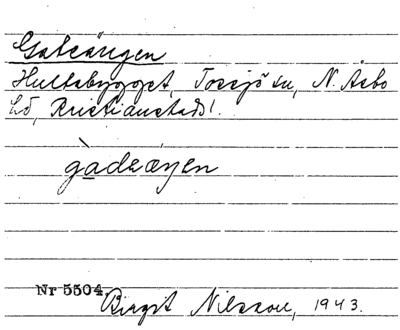 Gateängen
Hultabygget, Tossjö sn, N. Åsbo
hd, Kristianstads l.
gàdeæŋen
Nr 5504.
Birgit Nilsson, 1943.